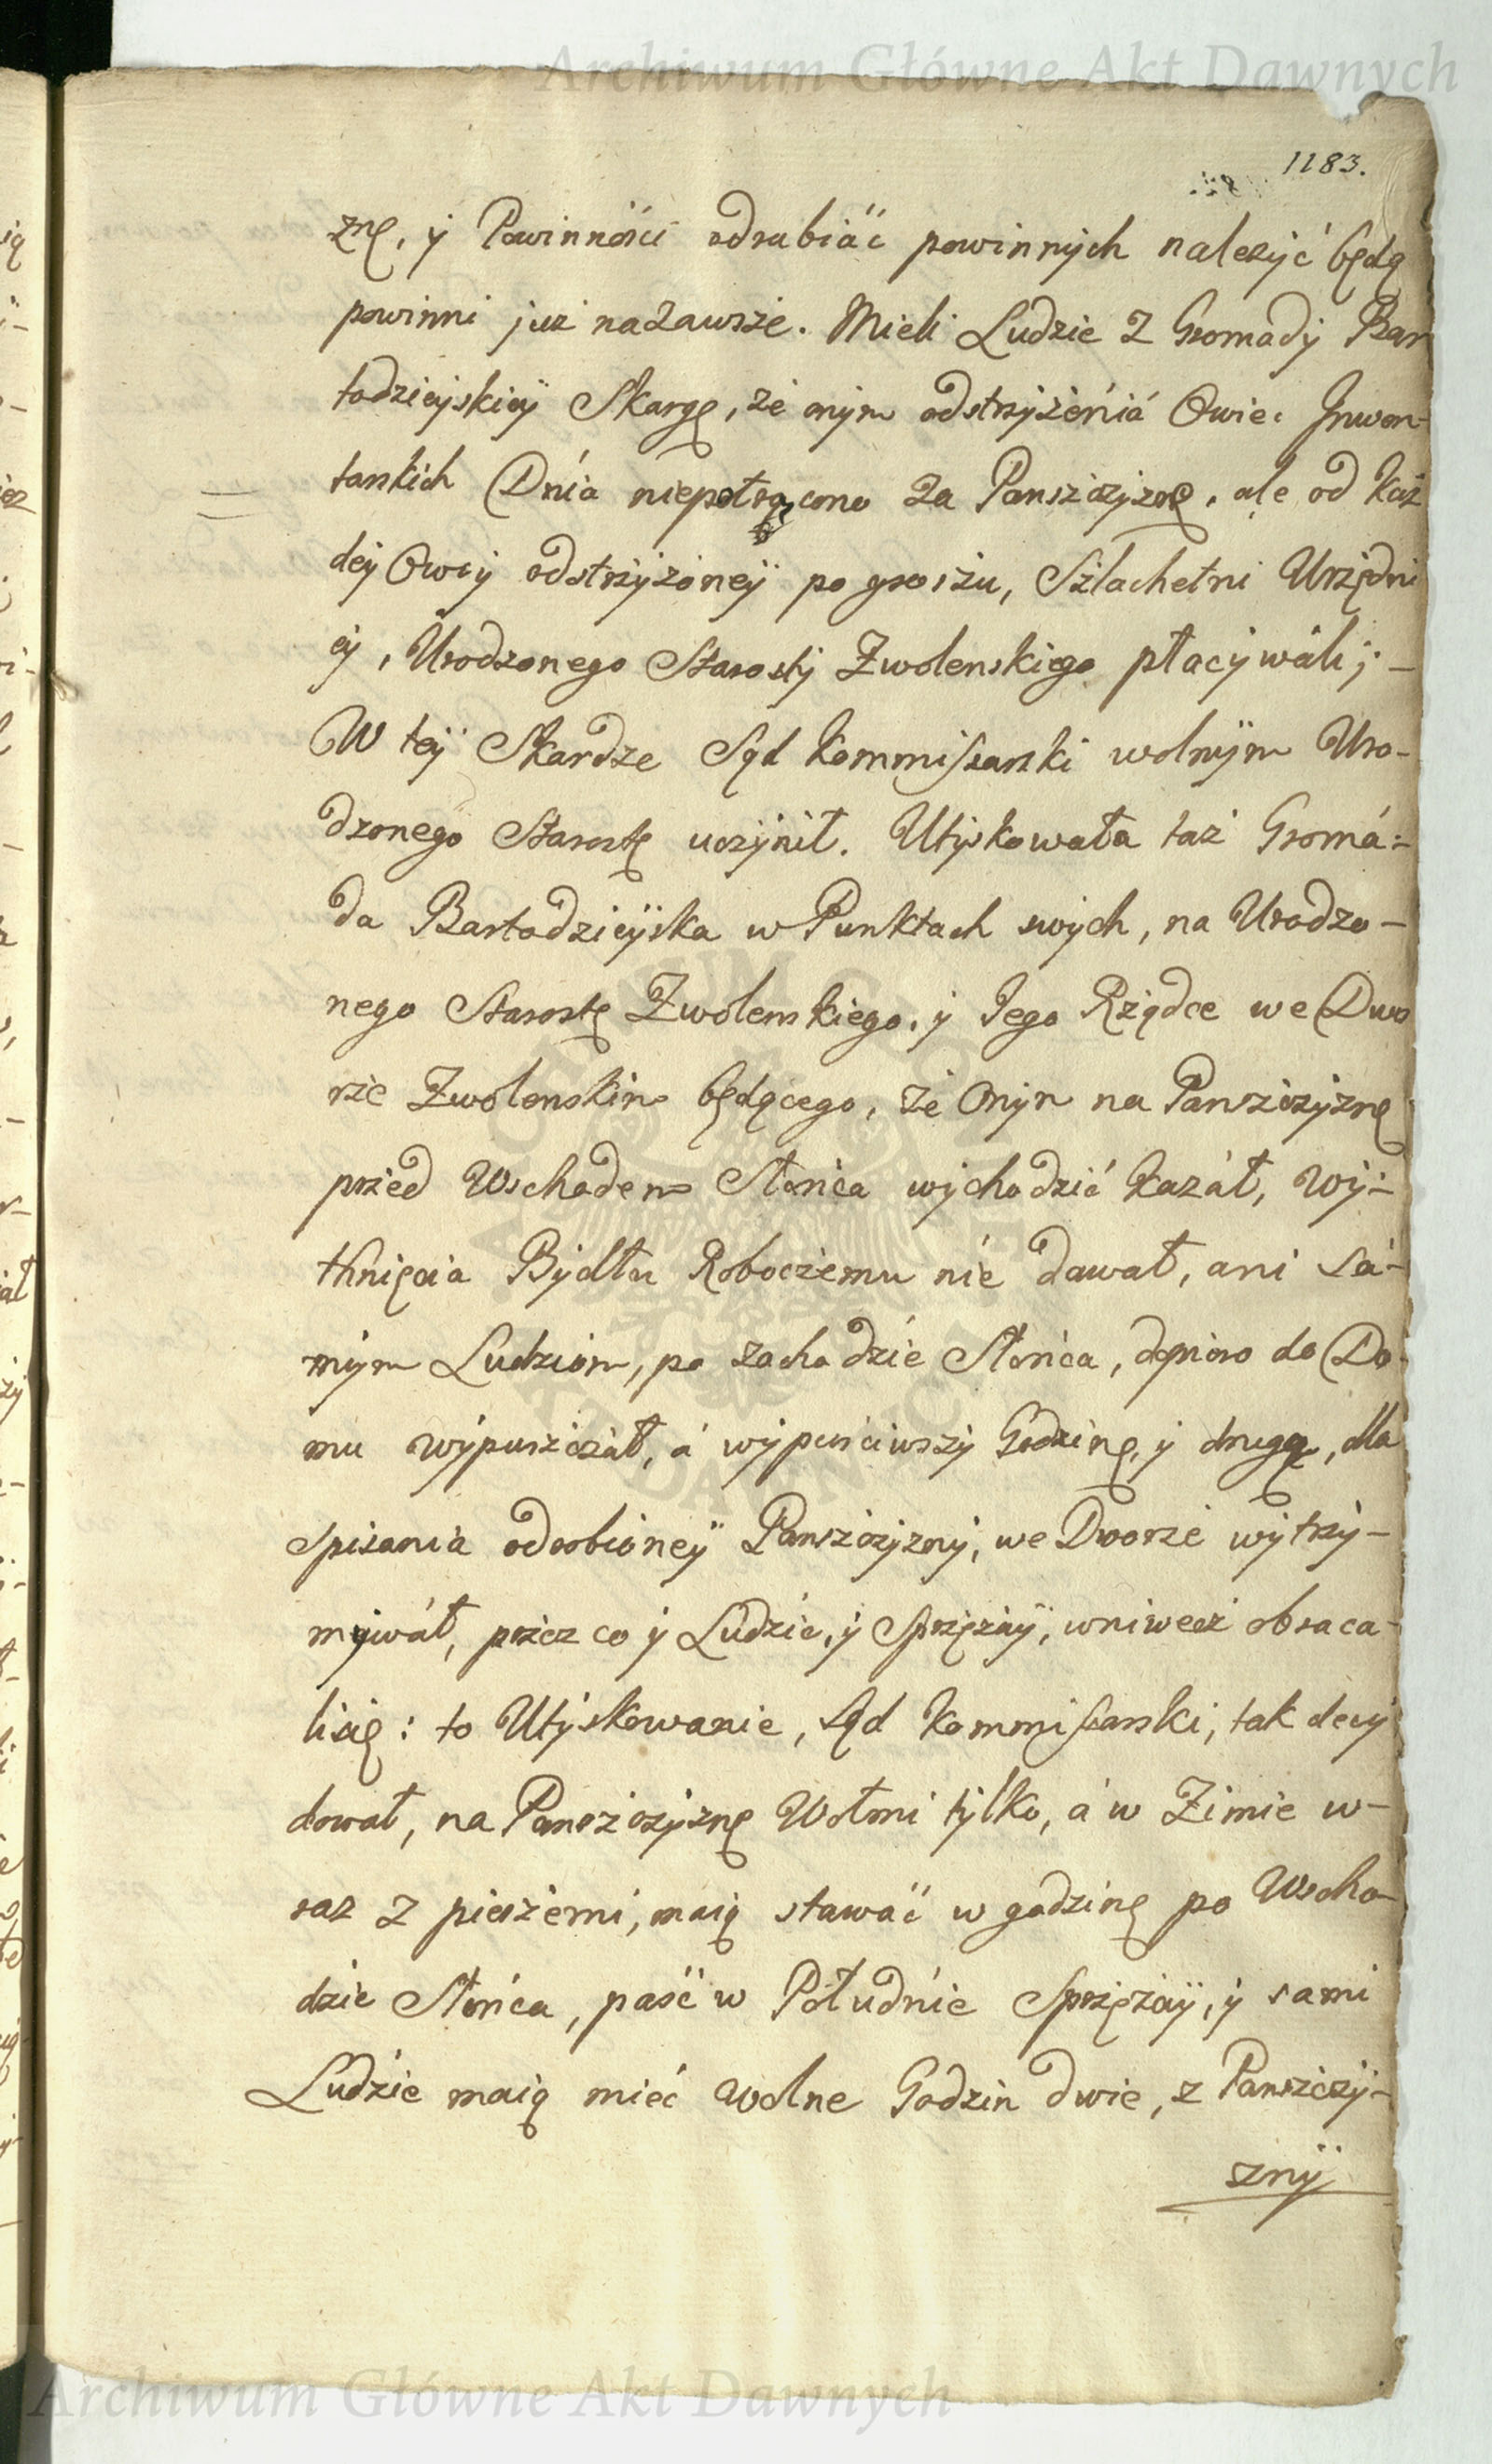 Archiwum Główne Akt Dawnych
1183.
znę, y Powinności odrabiać powinnych należyć będą
powinni już nazawsze. Mieli Ludzie z Gromady Bar
todzieyskiey Skargę, że onym odstrzyżenia Owiec Inwen-
tarskich Dnia niepotrącono za Panszczyznę, ale od każ
dey Owcy odstrzyżoney po groszu, Szlachetni Urzędni
cy, Urodzonego Starosty Zwolenskiego płacywali; –
W tey Skardze Sąd Kommissarski wolnym Uro-
dzonego Starostę uczynił. Utyskowała taż Groma-
da Bartodzieyska w Punktach swych, na Urodzo-
nego Starostę Zwolenskiego, y Jego Rządce we Dwo
rze Zwolenskim będącego, że Onym na Panszczyznę
przed Wschodem Słońca wychodzić kazał, Wy-
thnięcia Bydłu Roboczemu nie dawał, ani sa-
mym Ludziom, po zachodzie Słońca, dopiero do Do-
mu wypuszczał, a wypuściwszy Godzinę, y drugą, dla
spisania odrobioney Panszczyzny, we Dworze wytrzy-
mywał, przez co y Ludzie, y Sprzężay, wniwecz obraca-
lisię: to Utyskowanie, Sąd Kommissarski, tak decy
dował, na Panszczyznę Wołmi tylko, a w Zimie w-
raz z pieszemi, maią stawać w godzinę po Wscho-
dzie Słońca, paść w Południe Sprzężay, y sami
Ludzie maią mieć wolne Godzin dwie, z Panszczy-
zny
Archiwum Główne Akt Dawnych